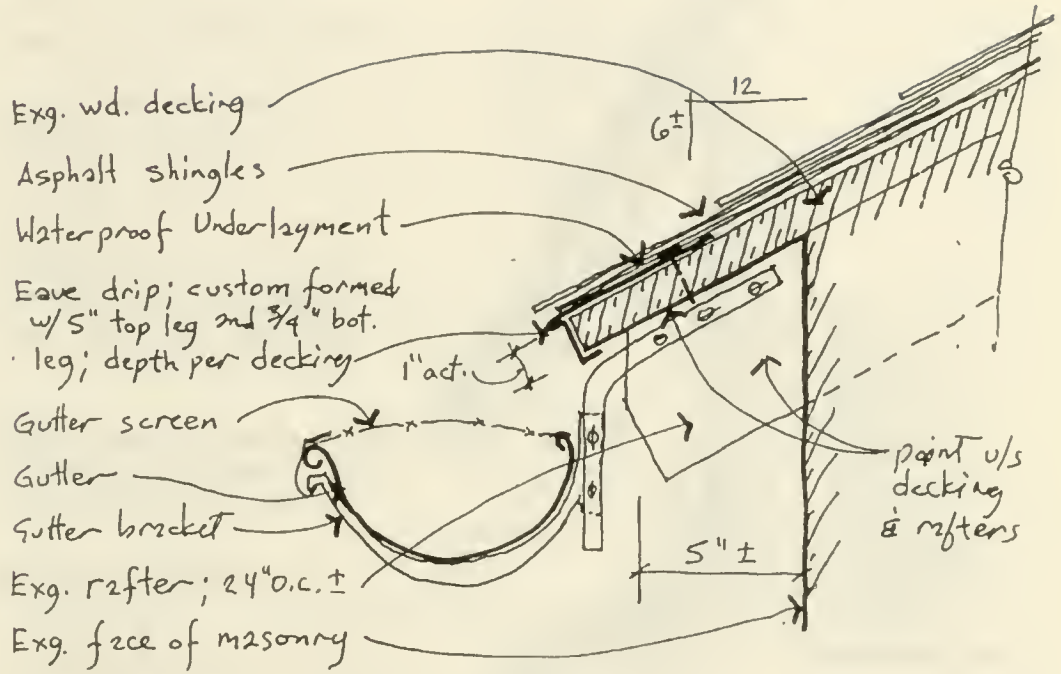 Exg. wd. decking
Asphalt shingles
Waterproof Underlayment
Eave drip; custom formed
w/ 5" top leg and 3/4" bot.
leg; depth per decking
1" act.
Gutter screen
Gutter
Gutter bracket
Exg. rafter; 24" o.c. ±
Exg. face of masonry
12
6±
5" ±
paint u/s
decking
& rafters